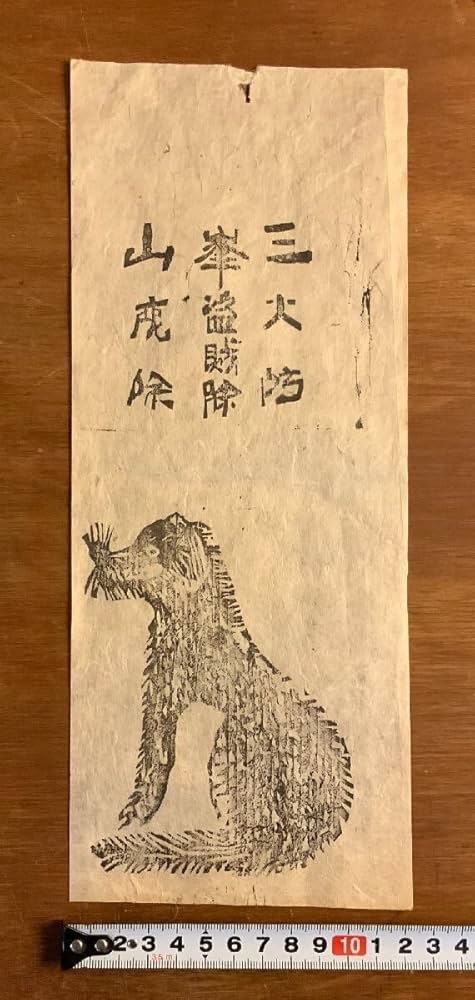 三火防
峯盗賊除
山鹿除
2 3 4 5 6 7 8 9 10 1 2 3 4
3.5 m